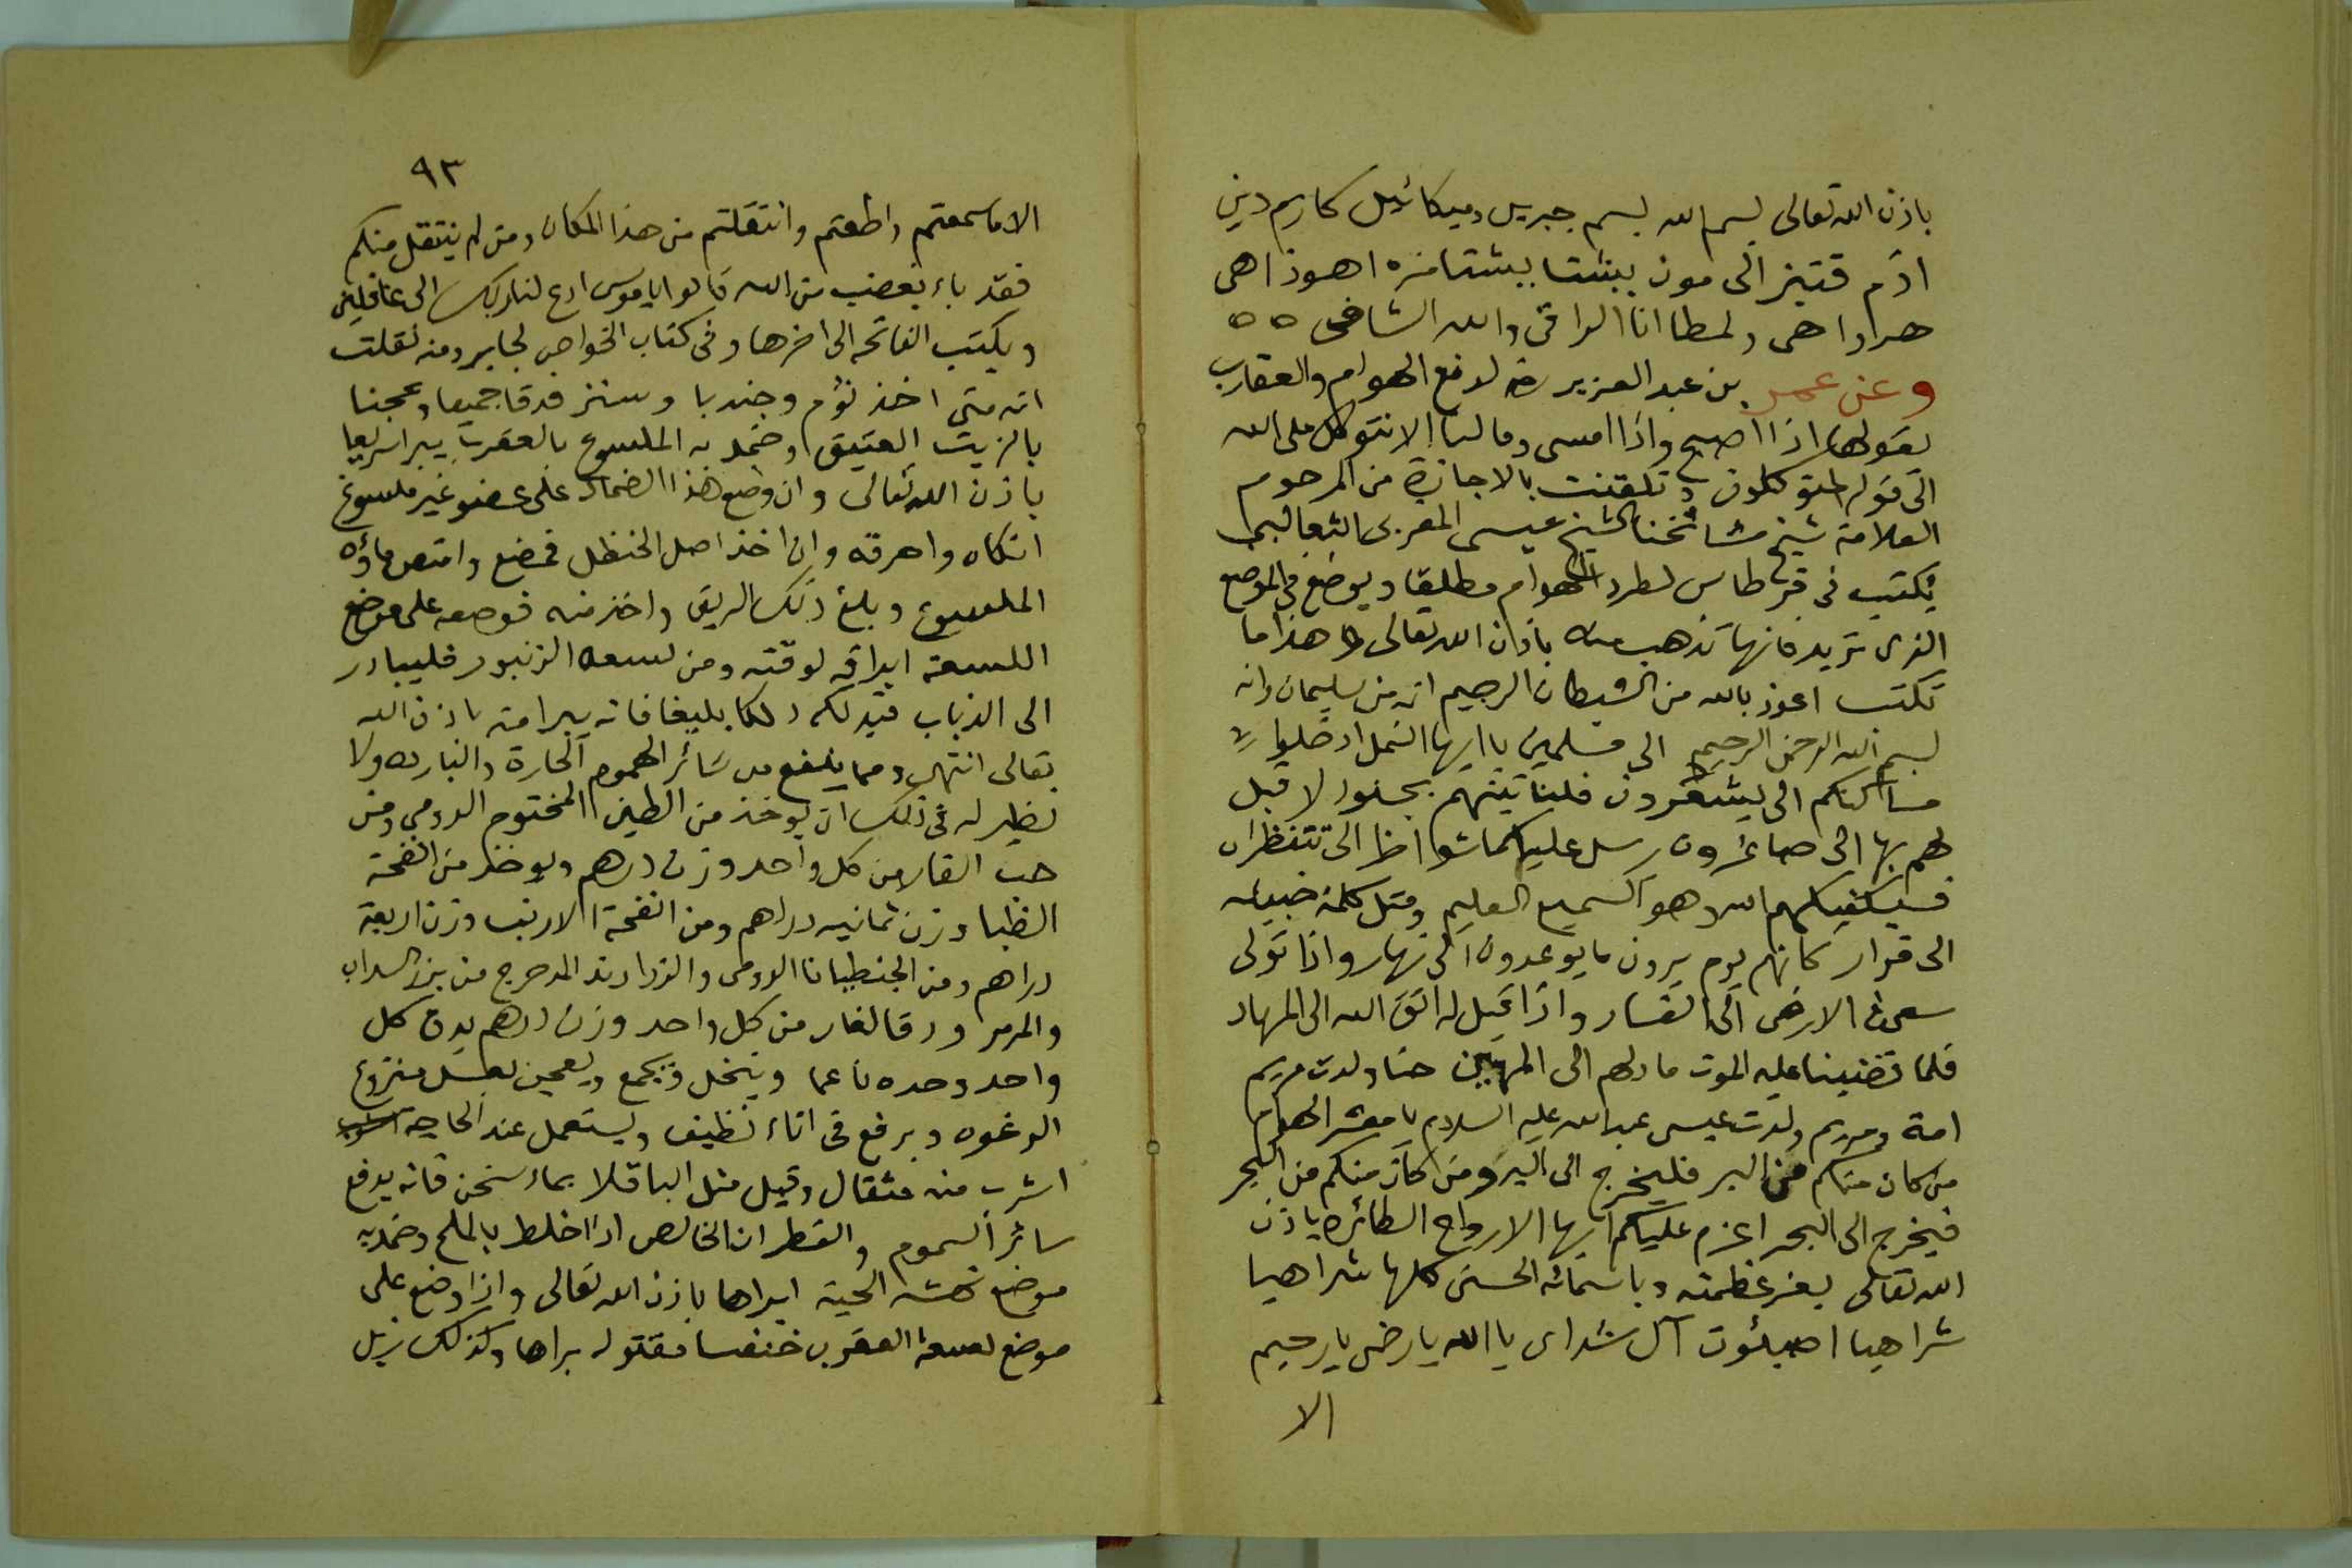 باذن الله تعالى بسم الله بسم جبريل وميكائيل كازم دين
ادم قتيز الى مون ببشتا ببشتامزه اهوذ اهى
هراواهى ولمطا انا الراقى والله الشافى ه ه
وعن عمر بن عبد العزيز رضه لدفع الهوام والعقارب
يقولها اذا اصبح واذا امسى وما لنا الا نتوكل على الله
الى قوله المتوكلون وتلقنت بالاجازة من المرحوم
العلامة شيخ مشائخنا الشيخ عيسى المغربى الثعالبى
يكتب فى قرطاس لطرد الهوام مطلقا ويوضع فى الموضع
الذى تريد فانها تذهب منه باذن الله تعالى و هذا ما
تكتب اعوذ بالله من الشيطان الرجيم انه من سليمان وانه
بسم الله الرحمن الرحيم الى مسلمين يا ايها النمل ادخلوا
مساكنكم الى يشعرون فلنأتينهم بجنود لا قبل
لهم بها الى صاغرون يرسل عليكما شواظ الى تنتظران
فسيكفيكهم الله وهو السميع العليم ومثل كلمة خبيثه
الى قرار كانهم يوم يرون ما يوعدون الى نهار واذا تولى
سعى فى الارض الى الفساد واذا قيل له اتق الله الى المهاد
فلما قضينا عليه الموت ما دلهم الى المهين حنا ولدت مريم
امة ومريم ولدت عيسى عبد الله عليه السلام يا معشر الهوام
من كان منكم من البر فليخرج الى البر ومن كان منكم من البحر
فيخرج الى البحر اعزم عليكم ايها الارواح الطائره باذن
الله تعالى بعز عظمته وباسمائه الحسنى كلها شراهيا
شراهيا اصبئوت آل شداى يا الله يا رضى يا رحيم
الا
٩٣
الا ما سمعتم واطعتم وانتقلتم من هذا المكان ومن لم ينتقل منكم
فقد باء بغضب من الله قالوا يا موسى ادع لنا ربك الى غافلين
ويكتب الفاتحه الى اخرها وفى كتاب الخواص لجابر ومنه نقلت
انه متى اخذ ثوم وجندبا وسنز فدقا جميعا وعجنا
بالزيت العتيق وضمد به الملسوع بالعقرب يبرا سريعا
باذن الله تعالى وان وضع هذا الضماد على عضو غير ملسوع
انكاه واحرقه وان اخذ اصل الحنظل فمضغ وامتص ماؤه
الملسوع وبلع ذلك الريق واخذ منه فوضعه على موضع
اللسعة ابراه لوقته ومن لسعه الزنبور فليبادر
الى الذباب فيدلكه دلكا بليغا فانه يبرا منه باذن الله
تعالى انتهى ومما ينفع من سائر الهموم الحارة والبارده ولا
نظير له فى ذلك ان يوخذ من الطين المختوم الرومى ومن
حب الغار من كل واحد وزن درهم ويوخذ من انفحة
الظبا وزن ثمانيه دراهم ومن انفحة الارنب وزن اربعة
دراهم ومن الجنطيانا الرومى والزراوند المدحرج من بزر السداب
والمر وورق الغار من كل واحد وزن درهم يدق كل
واحد وحده ناعما وينخل ويجمع ويعجن بعسل منزوع
الرغوه ويرفع فى اناء نظيف ويستعمل عند الحاجة
اشرب منه مثقال وقيل مثل الباقلا بماء سخن فانه يدفع
سائر السموم والقطران الخالص اذا خلط بالملح وضمد به
موضع نهشه الحية ابراها باذن الله تعالى واذا وضع على
موضع لسعة العقرب خنفسا مقتوله براها وكذلك زبل